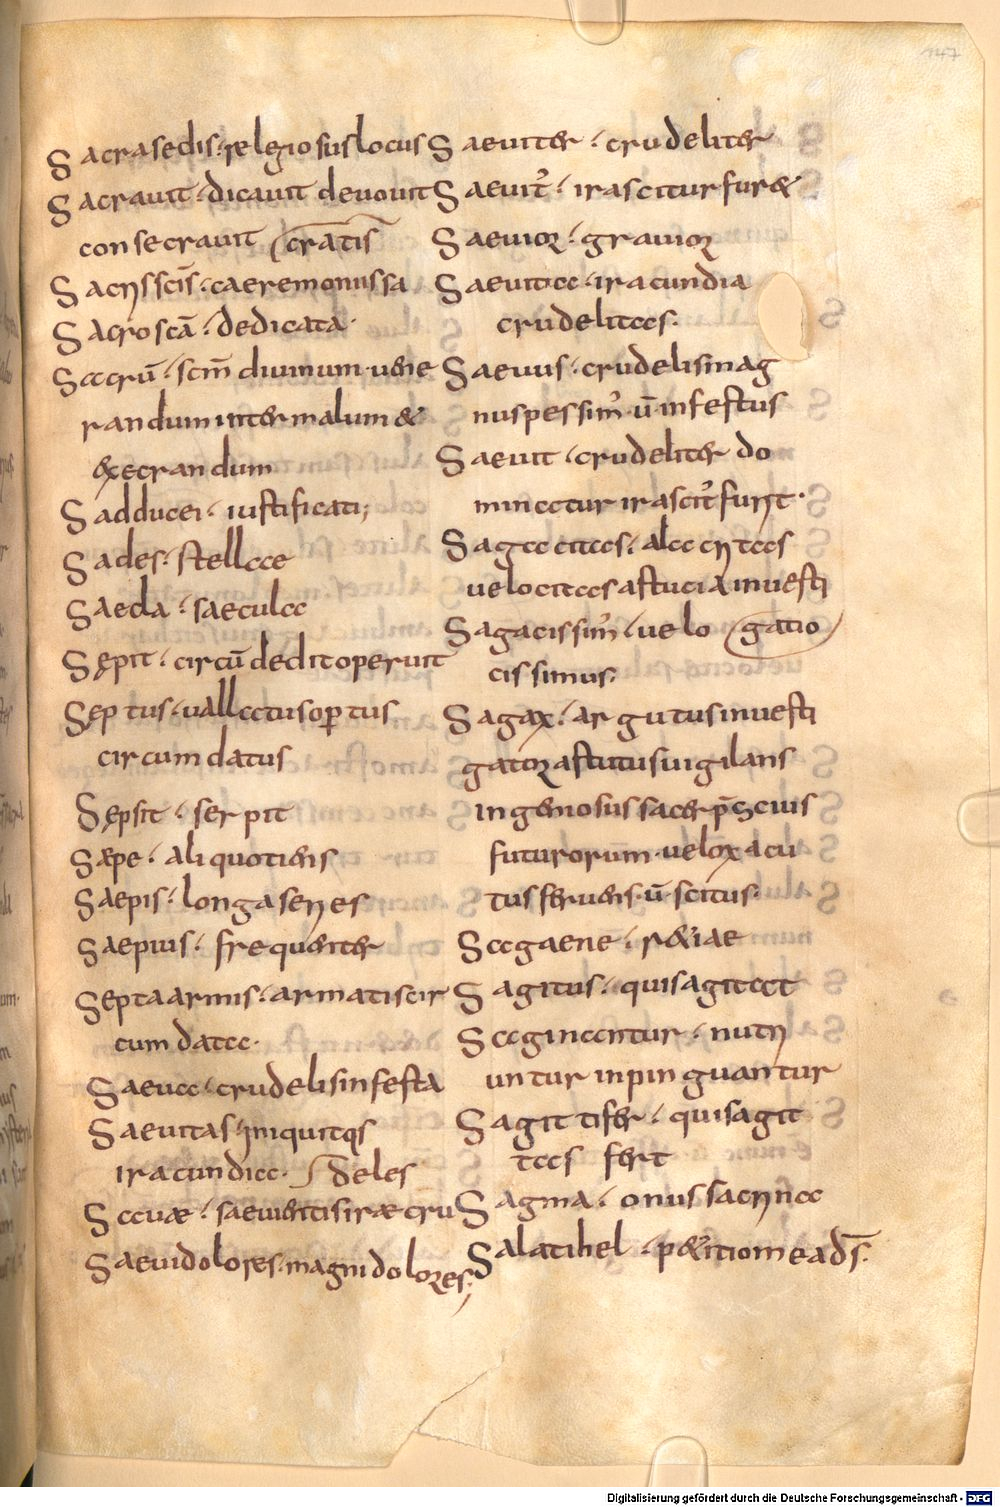 147
Sacrasedis·religiosus locus
Sacrauit·dicauit deuouit
consecrauit cratis
Sacriss̄cis·caeremoniissa
Sacroscā·dedicata·
Sacrū·sc̄m diuinum·uene
randum inter malum &
execrandum
Sadducei·iustificati;
Sades·stellae
Saecla·saecula
Sępit·circū dedit operuit
Sęptus·uallatus op̄tus
circumdatus
Sępsit·serpit
Sæpe·aliquotiens
Saepis·longaseries
Saepius·frequenter
Septaarmis·armatiscir
cumdata·
Saeua·crudelis infesta
Saeuitas·iniquitas
iracundiae· deles
Sauæ·saeuientis iræ cru
Saeuidolores·magni dolores;
Saeuiter·crudeliter
Saeuit᷒·irascitur fur&
Saeuior·grauior
Saeuitia·iracundia
crudelitas·
Saeuus·crudelis mag
nus pessim᷒·ū infestus
Saeuit·crudeliter do
minatur irascit᷒ furit·
Sagacitas·alacritas
uelocitas astucia inuesti
Sagacissim᷒·uelo gatio
cissimus·
Sagax·argutus inuesti
gator astutus uigilans
ingeniosus sacer p̄scius
futurorum·uelox acu
tus feruens·ū·scitus·
Sagaene·r&iae
Sagitus·quisagitat
Saginantur·nutri
untur inpinguantur
Sagittifer·quisagit
tas fert
Sagma·onus sacrina
Salatihel·p&itiomeads̄·
Digitalisierung gefördert durch die Deutsche Forschungsgemeinschaft - DFG